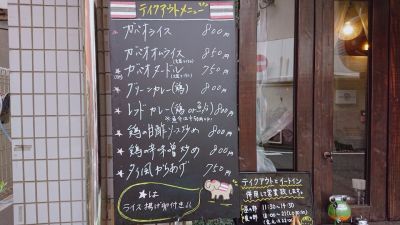 テイクアウトメニュー
ガパオライス 800円
ガパオオムライス 850円
ガパオヌードル 750円
グリーンカレー(鶏) 800円
レッドカレー(鶏 or 800円
鶏の甘酢ソース炒め 800円
鶏の辛味噌炒め 800円
タイ風からあげ 750円
★は
ライス、揚げ卵付き♪♪
テイクアウトとイートイン
併用で営業致します。
11:30〜14:30